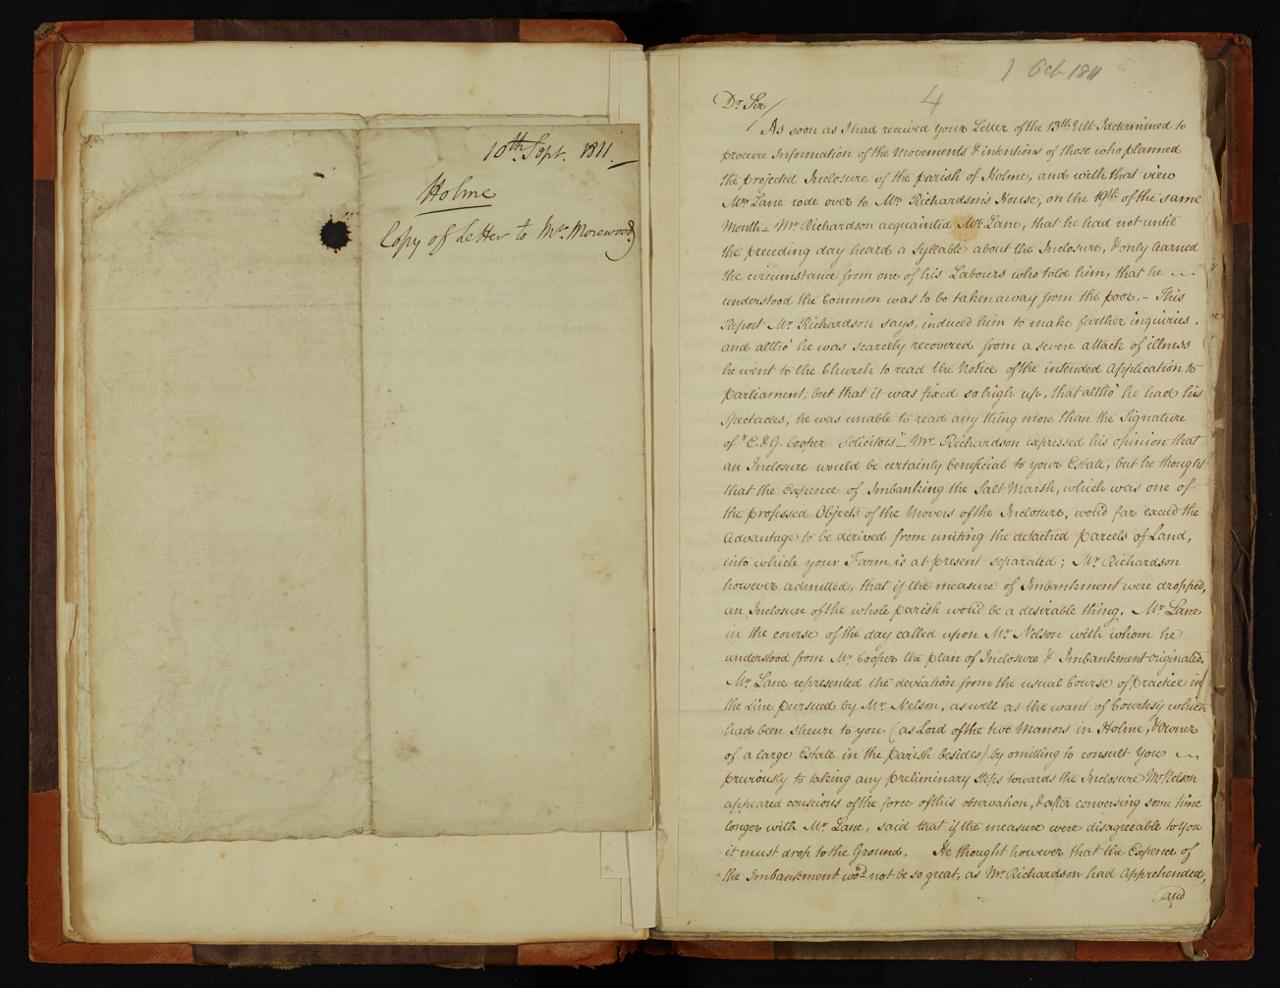 10th. Sept. 1811.
Holme
Copy of Letter to Mr. Morewood
1 Oct 1811
4
Dr. Sir/
As soon as I had received your Letter of the 13th. Ult. I determined to
procure Information of the Movements & intentions of those who planned
the projected Inclosure of the parish of Holme, and with that view
Mr. Lane rode over to Mr. Richardson's House, on the 19th. of the same
Month – Mr. Richardson acquainted Mr. Lane, that he had not until
the preceding day heard a Syllable about the Inclosure, & only learned
the circumstance from one of his Labours who told him, that he
understood the Common was to be taken away from the poor, – This
Report Mr. Richardson says, induced him to make further inquiries,
and altho' he was scarcely recovered from a severe attack of illness
he went to the Church to read the Notice of the intended Application to
Parliament, but that it was fixed so high up, that altho' he had his
Spectacles, he was unable to read any thing more than the Signature
of "E. & G. Cooper Solicitors" – Mr. Richardson expressed his opinion that
an Inclosure would be certainly beneficial to your Estate, but he thought
that the Expence of Imbanking the Salt Marsh, which was one of
the professed Objects of the Movers of the Inclosure, would far exceed the
Advantage to be derived from uniting the detached parcels of Land,
into which your Farm is at present separated; Mr. Richardson
however admitted, that if the measure of Imbankment were dropped,
an Inclosure of the whole parish would be a desirable thing. Mr. Lane
in the course of the day called upon Mr. Nelson with whom he
understood from Mr. Cooper the plan of Inclosure & Imbankment originated.
Mr. Lane represented the deviation from the usual Course of practice in
the Line pursued by Mr. Nelson, as well as the want of Courtesy which
had been shewn to you (as Lord of the two Manors in Holme, & Owner
of a large Estate in the Parish besides) by omitting to consult You
previously to taking any preliminary steps towards the Inclosure Mr. Nelson
appeared conscious of the force of this observation, & after conversing some time
longer with Mr. Lane, said that if the measure were disagreeable to you
it must drop to the Ground. He thought however that the Expence of
the Imbankment wod. not be so great, as Mr. Richardson had Apprehended,
and